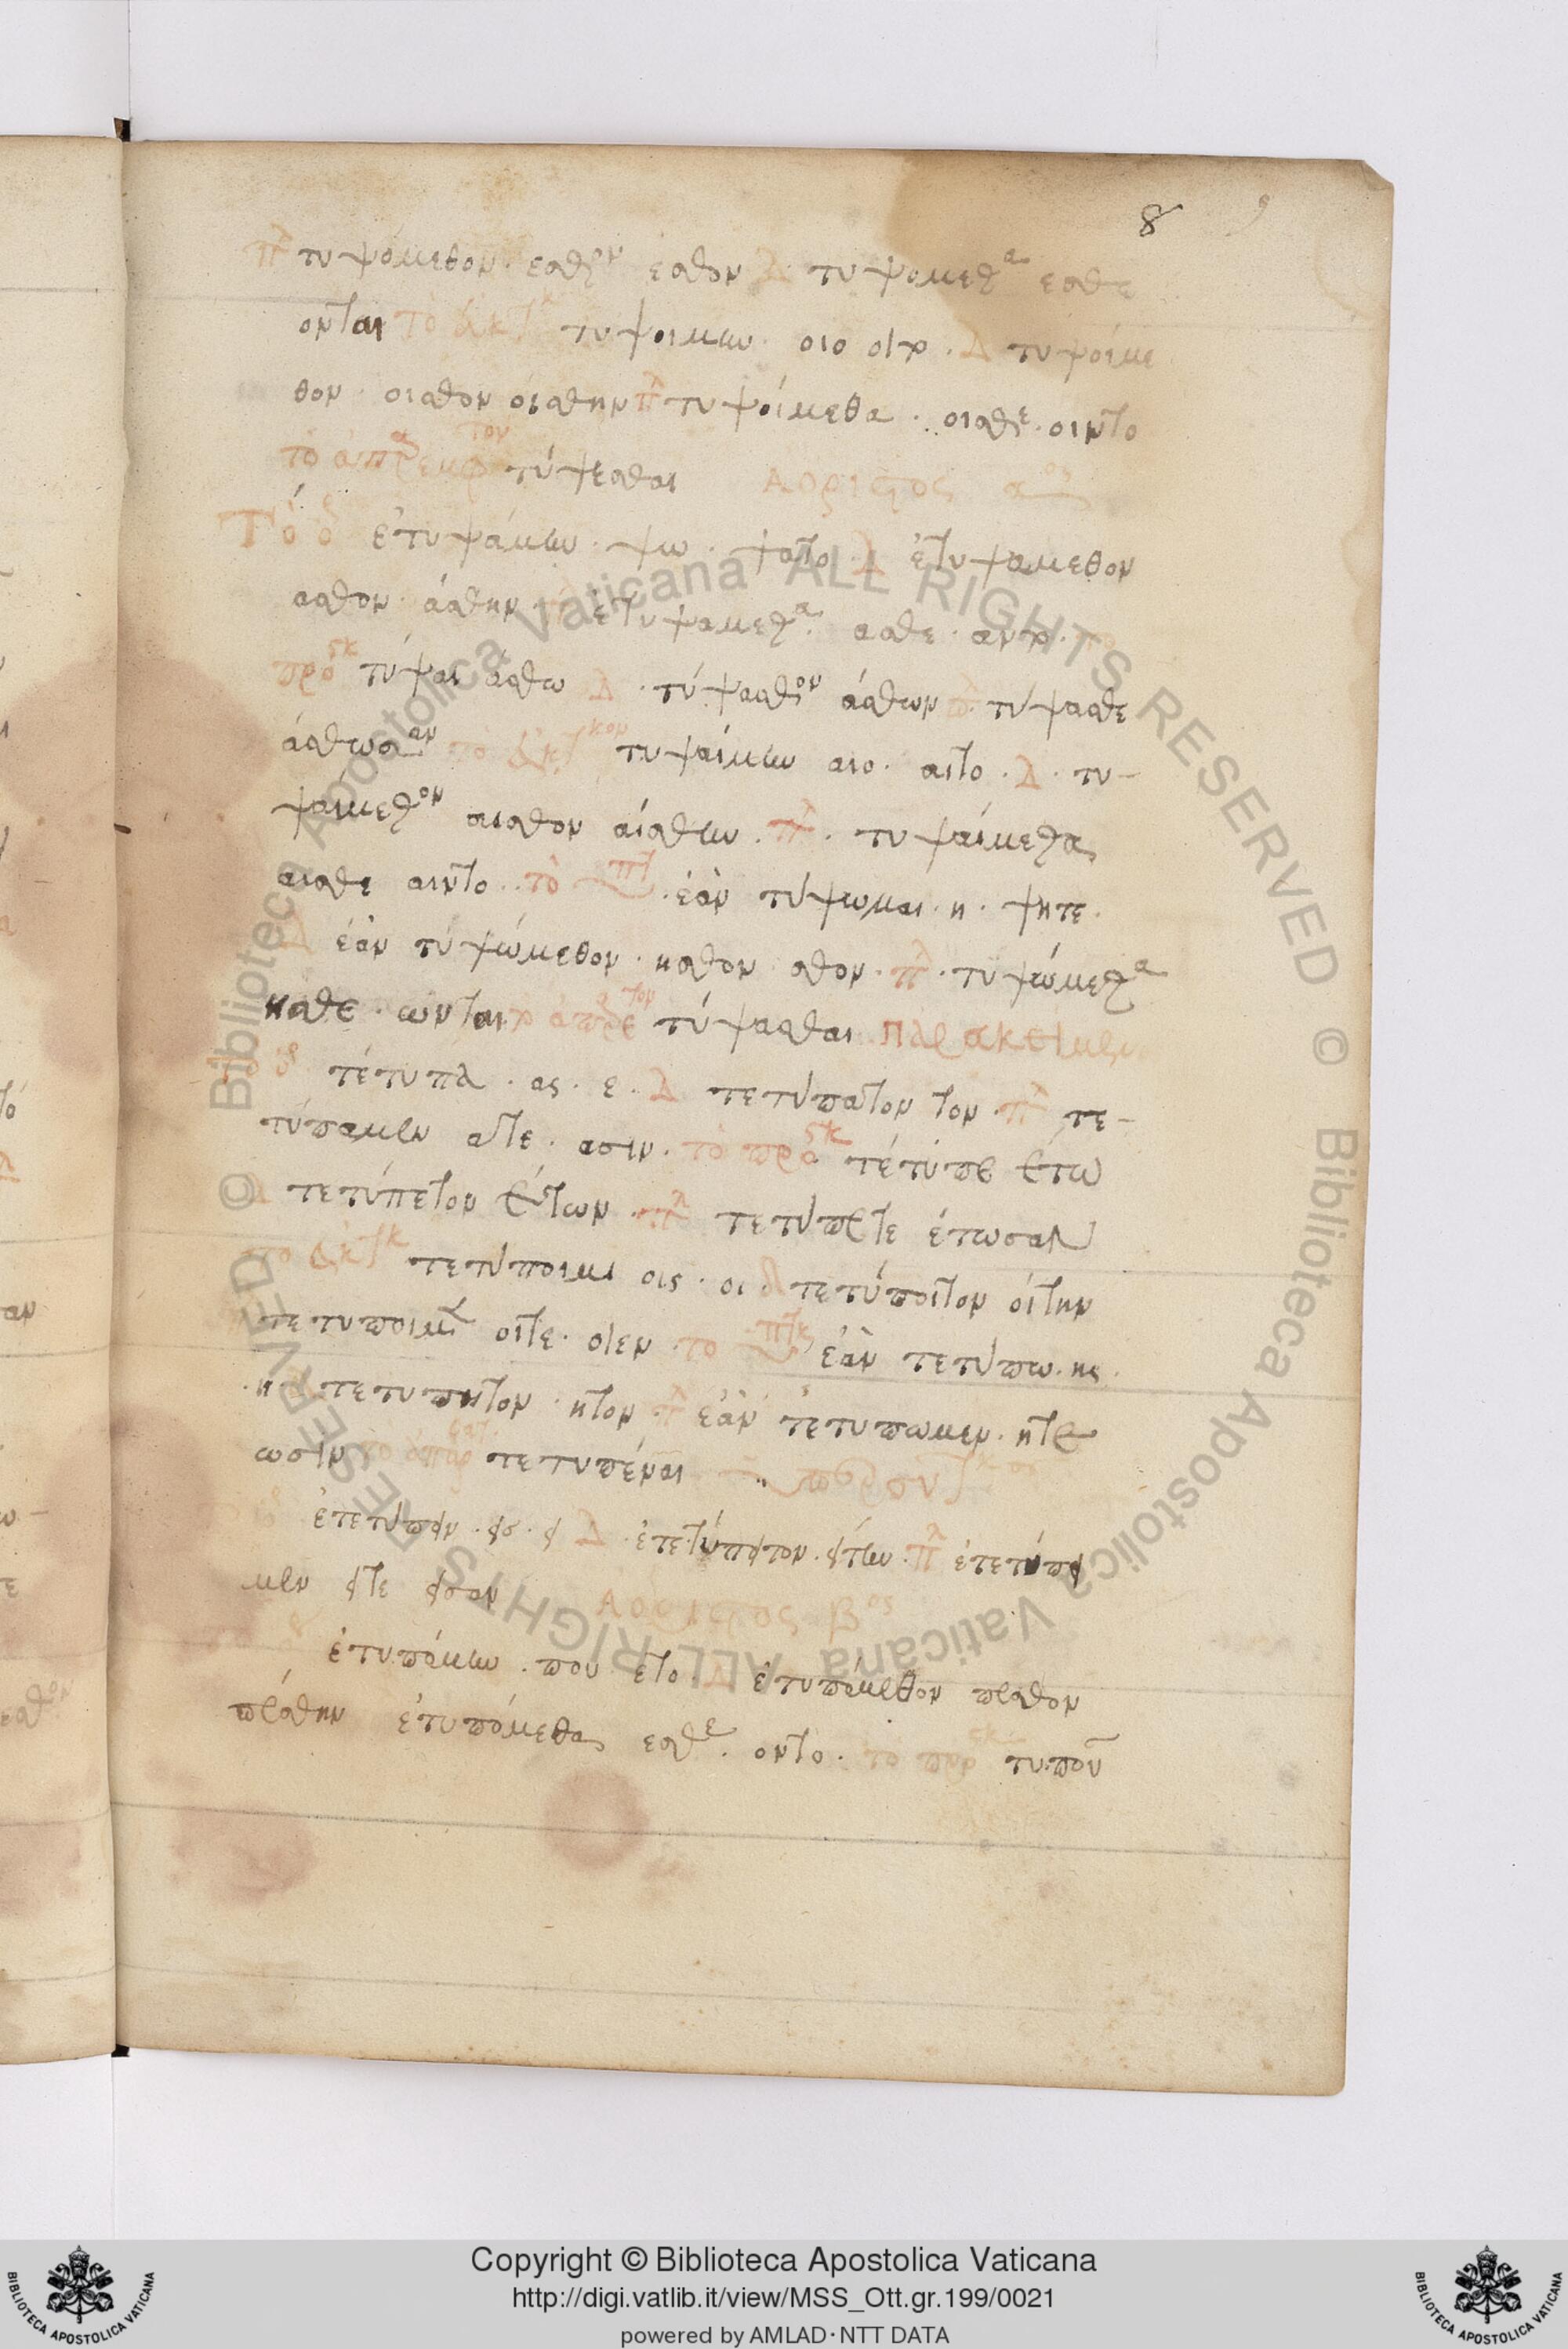 8
πλ τυψόμεθον· εσθον εσθον Δ τυψομεθα εσθε
ονται τὸ εὐκτκ τυψοιμην· οιο οιτο · Δ τυψοίμε
θον · οισθον οίσθην πλ τυψοίμεθα · οισθε · οιντο
τὸ ἀπαρεμφτον τύψεσθαι Αόριστος αος
Τὸ ὁ ἐτυψάμην · ψω · ψατο Δ ἐτυψαμεθον
ασθον άσθην ἐτυψαμεθα · ασθε · αντο ·
προσκ τύψαι άσθω Δ · τύψασθον άσθων πλ τύψασθε
άσθωσαν τὸ εὐκτκον τυψαίμην αιο · αιτο · Δ · τυ-
ψαίμεθον αισθον αίσθην · πλ · τυψαίμεθα
αισθε αιντο · τὸ υπτ · ἐὰν τύψωμαι · η · ψητε ·
Δ ἐὰν τυψώμεθον · ησθον σθον · πλ · τυψώμεθα
ησθε · ωνται το ἀπαρετον τύψασθαι Παρακείμεν
τὸ ὁ τέτυπα · ας · ε · Δ τετύπατον τον · πλ τε-
τύπαμεν ατε · ασιν · τὸ προσκ τέτυπε έτω
Δ τετύπετον έτων · πλ τετύπετε έτωσαν
το εὐκτκ τετύποιμι οις · οι Δ τετύποιτον οίτην
τετυποιμεν οιτε · οιεν το υπτκ ἐὰν τετύπω · ης ·
η · τετυπητον · ητον · πλ ἐὰν τετυπωμεν · ητε
ωσιν το ἀπαρ τετυπέναι ὑπερσυντκος
ἐτετύπειν · εις · ει Δ · ἐτετύπειτον · είτην · πλ ἐτετύπει
μεν ειτε εισαν Αόριστος βος
ἐτυπόμην · που · ετο · Δ ἐτυπόμεθον πεσθον
πέσθην ἐτυπόμεθα εσθε · οντο · τὸ προσκ τυποῦ
Copyright © Biblioteca Apostolica Vaticana
http://digi.vatlib.it/view/MSS_Ott.gr.199/0021
powered by AMLAD·NTT DATA
BIBLIOTECA APOSTOLICA VATICANA
BIBLIOTECA APOSTOLICA VATICANA
© Biblioteca Apostolica Vaticana ALL RIGHTS RESERVED © Biblioteca Apostolica Vaticana ALL RIGHTS RESERVED